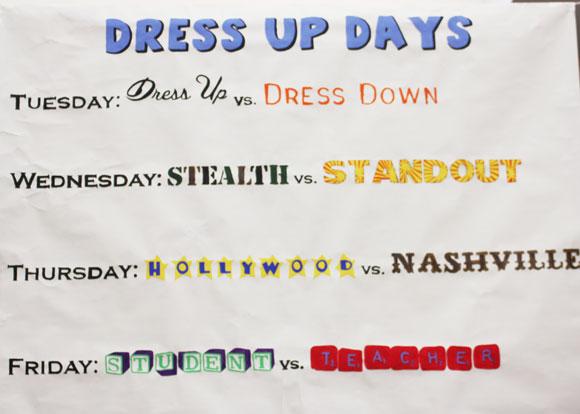 DRESS UP DAYS
TUESDAY: Dress Up vs. DRESS DOWN
WEDNESDAY: STEALTH vs. STANDOUT
THURSDAY: HOLLYWOOD vs. NASHVILLE
FRIDAY: STUDENT vs. TEACHER